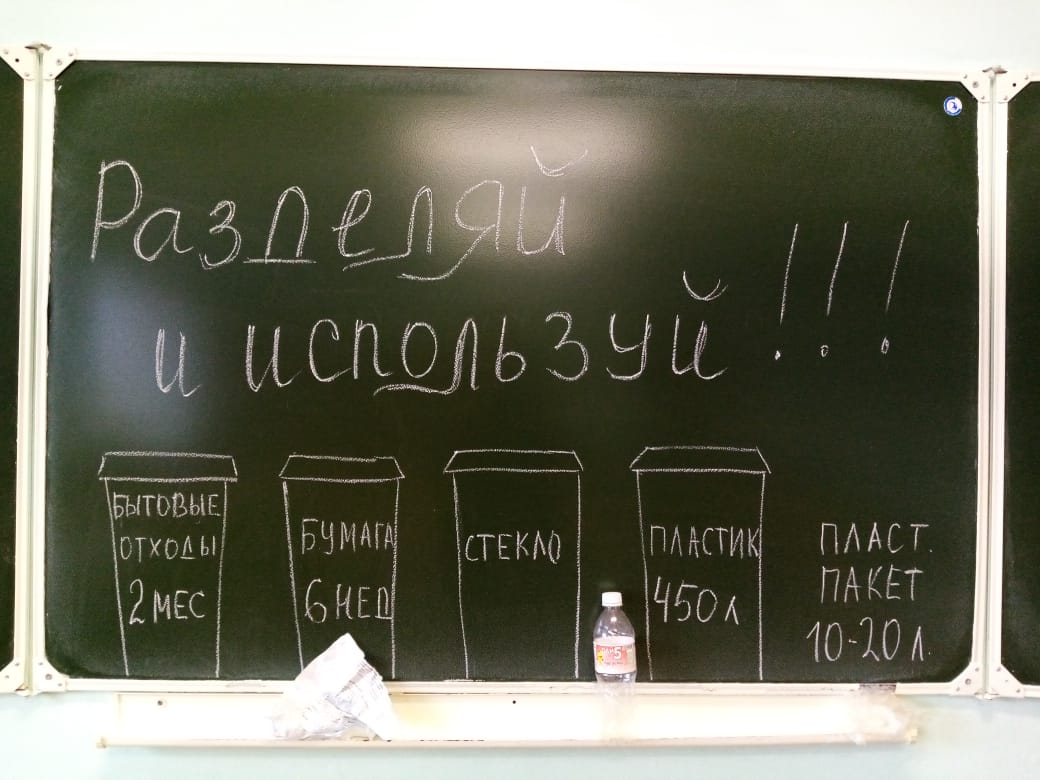 Разделяй
и используй !!!
БЫТОВЫЕ
ОТХОДЫ
2 МЕС
БУМАГА
6 НЕД
СТЕКЛО
ПЛАСТИК
450 л
ПЛАСТ.
ПАКЕТ
10-20 л.